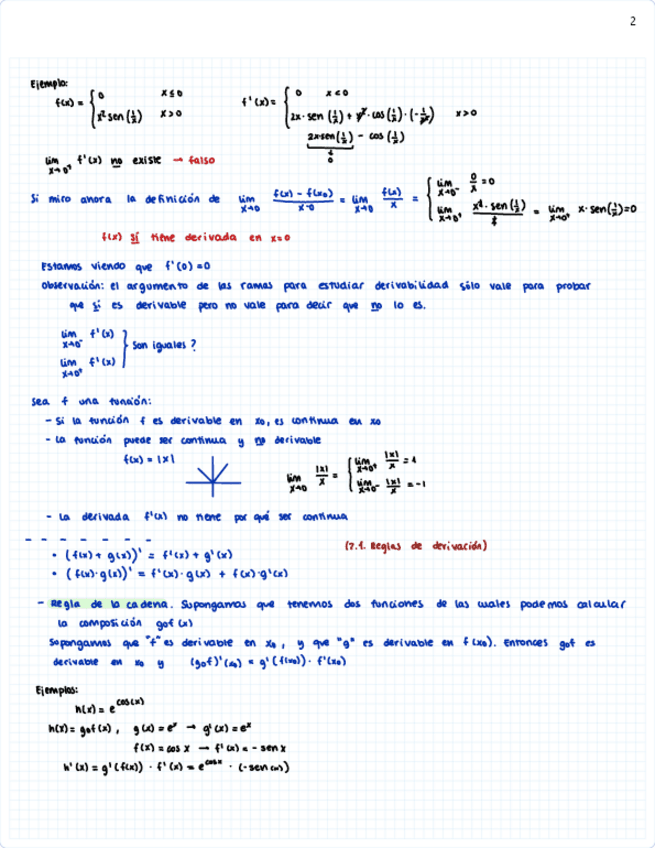 2
Ejemplo:
f(x) = { 0 x ≤ 0
x² sen (1/x) x > 0
f'(x) = { 0 x < 0
2x · sen (1/x) + x² · cos (1/x) · (-1/x²) x > 0
2x sen (1/x) - cos (1/x)
↓
0
lim x→0⁺ f'(x) no existe → falso
Si miro ahora la definición de lim x→0 (f(x) - f(x₀))/(x-0) = lim x→0 f(x)/x = { lim x→0⁻ 0/x = 0
lim x→0⁺ (x² · sen (1/x))/x = lim x→0⁺ x · sen (1/x) = 0
f(x) sí tiene derivada en x=0
Estamos viendo que f'(0) = 0
Observación: el argumento de las ramas para estudiar derivabilidad sólo vale para probar
que sí es derivable pero no vale para decir que no lo es.
lim x→0⁻ f'(x)
lim x→0⁺ f'(x) } son iguales?
Sea f una función:
- Si la función f es derivable en x₀, es continua en x₀
- La función puede ser continua y no derivable
f(x) = |x|
lim x→0 |x|/x = { lim x→0⁺ |x|/x = 1
lim x→0⁻ |x|/x = -1
- La derivada f'(x) no tiene por qué ser continua
(7.1. Reglas de derivación)
• (f(x) + g(x))' = f'(x) + g'(x)
• (f(x) · g(x))' = f'(x) · g(x) + f(x) · g'(x)
- Regla de la cadena. Supongamos que tenemos dos funciones de las cuales podemos calcular
la composición gof (x)
Sopongamos que "f" es derivable en x₀, y que "g" es derivable en f(x₀). Entonces gof es
derivable en x₀ y (gof)'(x₀) = g'(f(x₀)) · f'(x₀)
Ejemplos:
h(x) = e^cos(x)
h(x) = gof (x), g(x) = eˣ → g'(x) = eˣ
f(x) = cos x → f'(x) = - sen x
h'(x) = g'(f(x)) · f'(x) = e^cosx · (-sen(x))